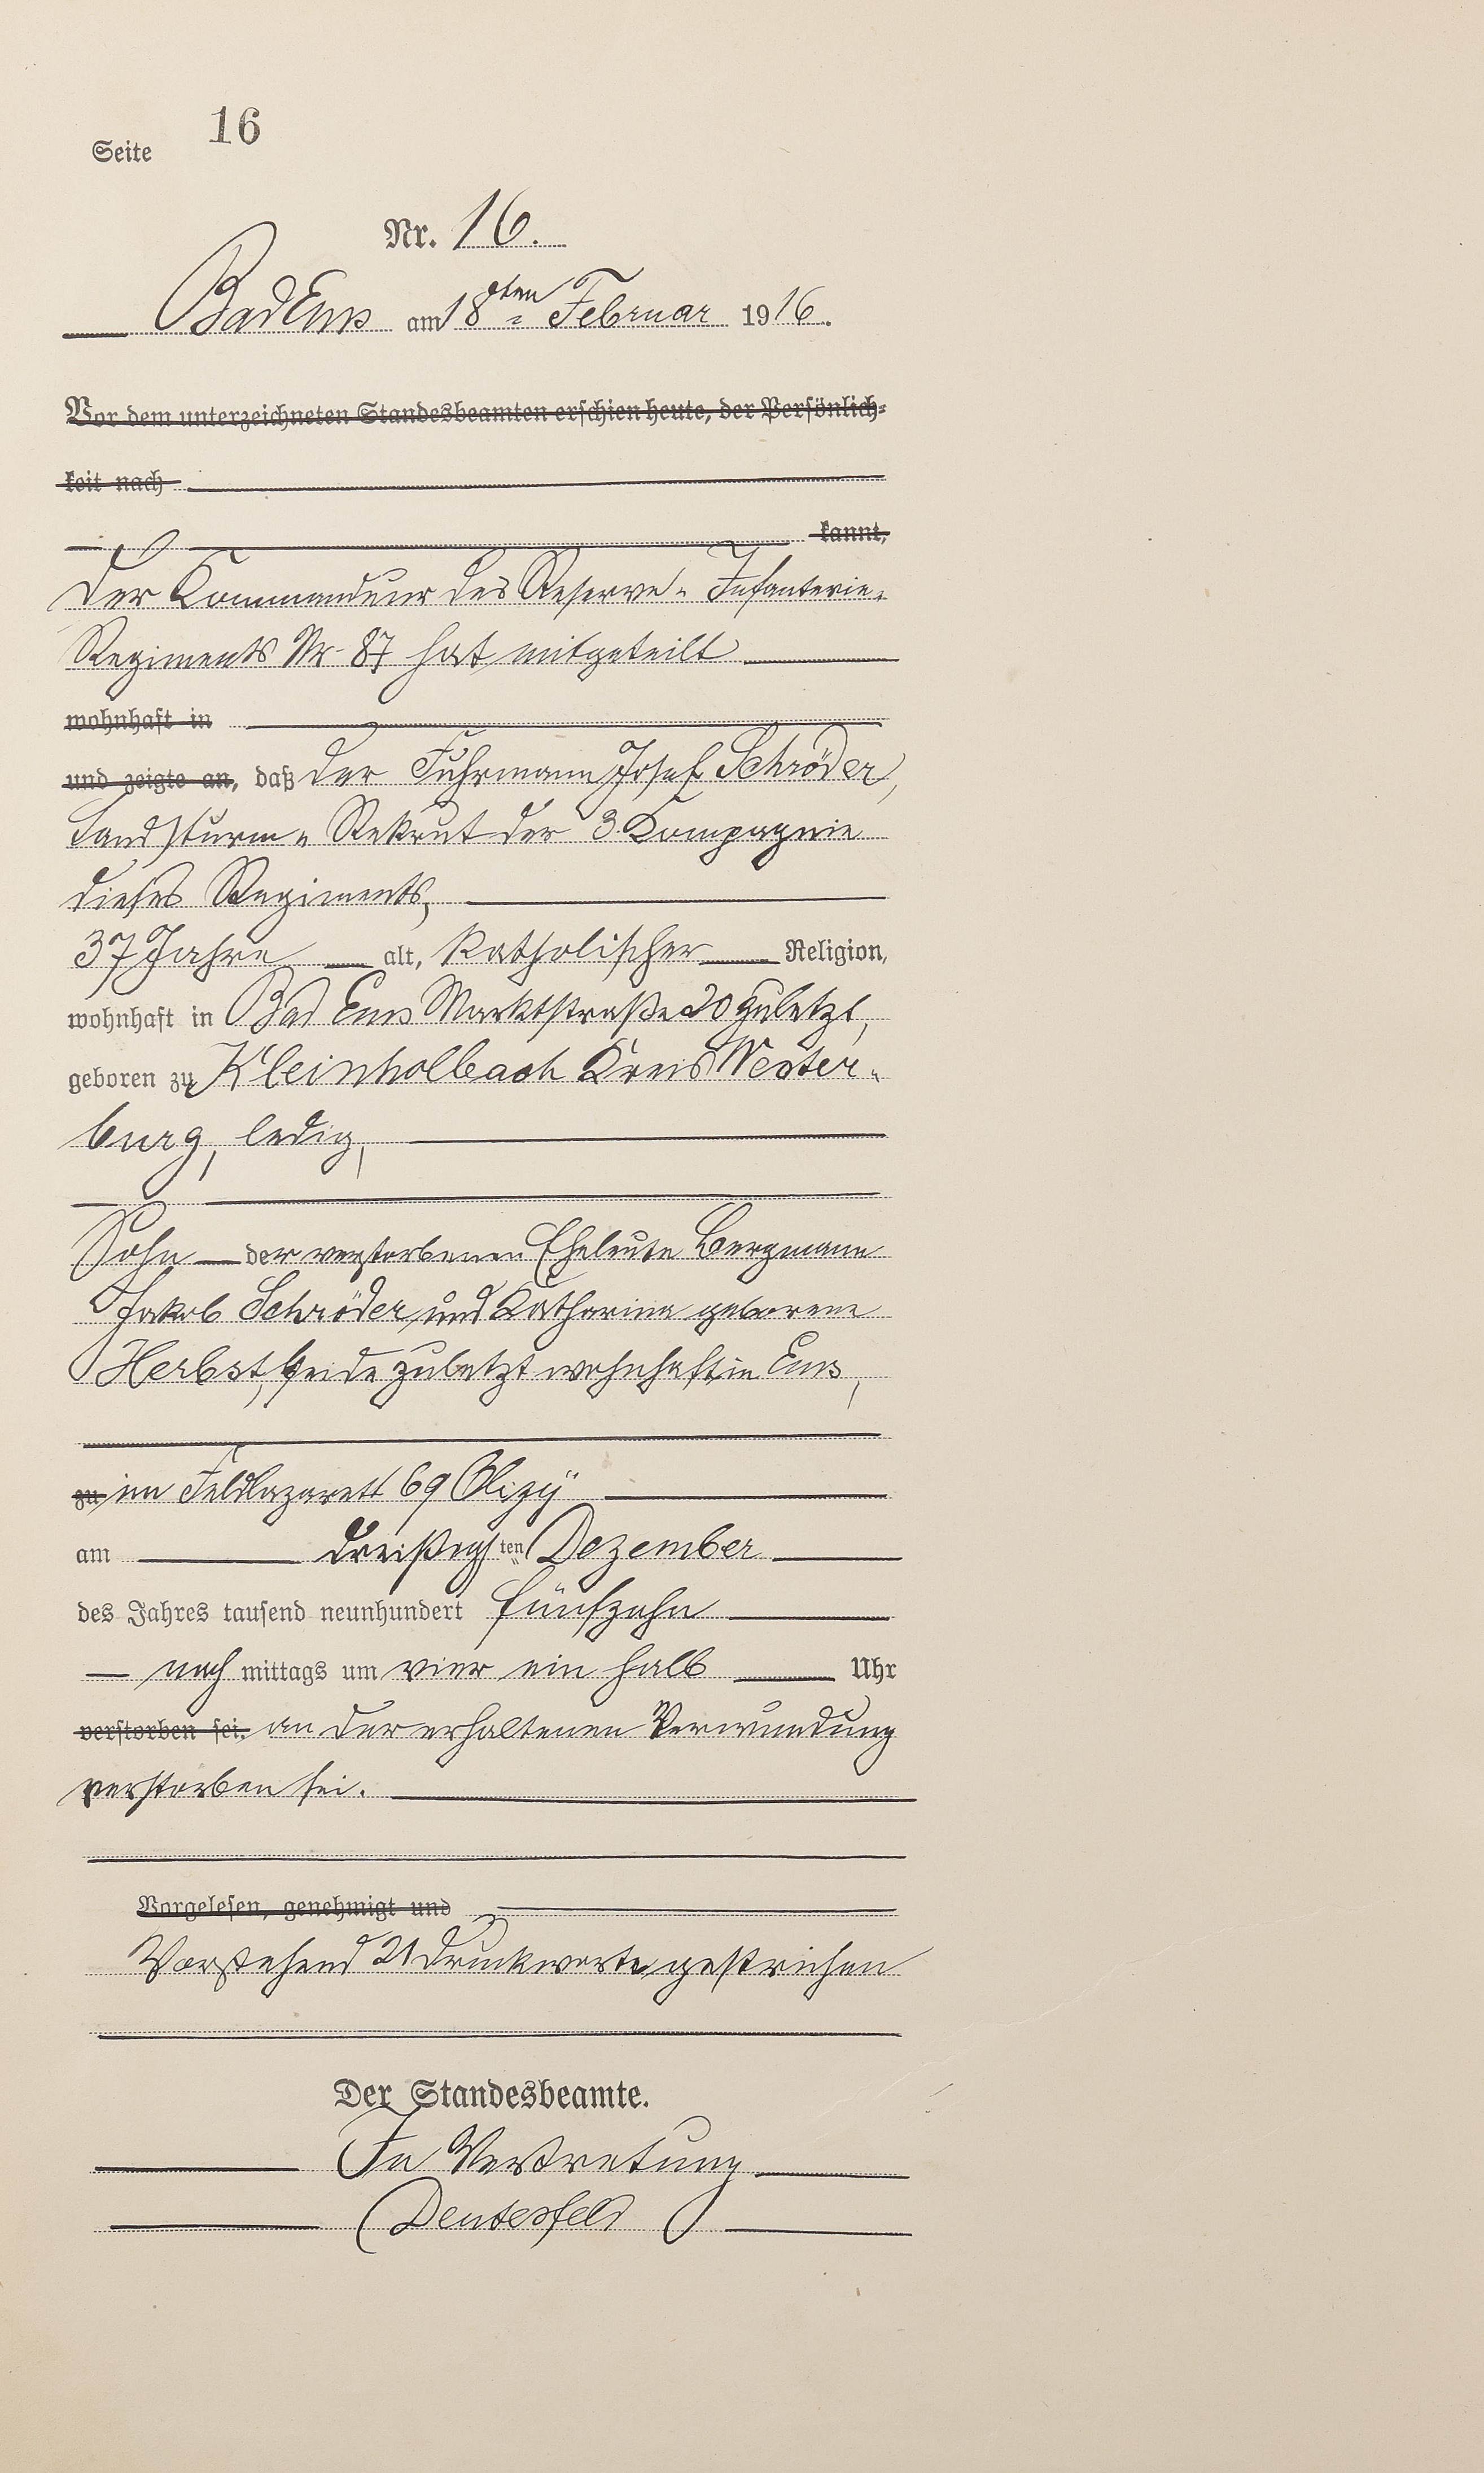 Seite 16
Nr. 16.
Bad Ems am 18ten Februar 1916.
Vor dem unterzeichneten Standesbeamten erschien heute, der Persönlich-
keit nach
kannt,
Der Kommandeur des Reserve-Infanterie-
Regiments Nr. 87 hat mitgeteilt
wohnhaft in
und zeigte an, daß der Fuhrmann Josef Schröder,
Landsturm-Rekrut der 3. Kompagnie
dieses Regiments,
37 Jahre alt, katholischer Religion,
wohnhaft in Bad Ems Marktstraße 20 zuletzt,
geboren zu Kleinholbach Kreis Wester-
burg, ledig,
Sohn der verstorbenen Eheleute Bergmann
Jakob Schröder und Katharina geborene
Herbst, beide zuletzt wohnhaft in Ems,
zu im Feldlazarett 69 Olizy
am dreißigsten Dezember
des Jahres tausend neunhundert fünfzehn
nach mittags um vier ein halb Uhr
verstorben sei. an der erhaltenen Verwundung
verstorben sei.
Vorgelesen, genehmigt und
Vorstehend 21 Druckworte gestrichen
Der Standesbeamte.
In Vertretung
Deutesfeld